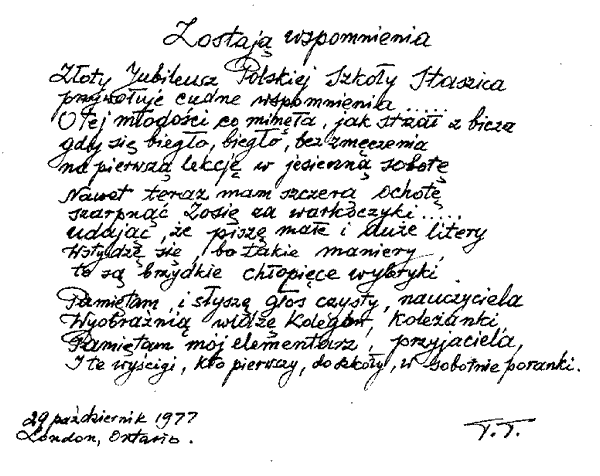 Zostają wspomnienia
Złoty Jubileusz Polskiej Szkoły Staszica
przywołuje cudne wspomnienia.....
O tej młodości co minęła, jak strzał z bicza
gdy się biegło, biegło, bez zmęczenia
na pierwszą lekcję w jesienną sobotę
Nawet teraz mam szczerą ochotę
szarpnąć Zosię za warkoczyki.....
udając, że piszę małe i duże litery
Wstydzę się, bo takie maniery,
to są brzydkie chłopięce wybryki.
Pamiętam, i słyszę głos czysty, nauczyciela
Wyobraźnią widzę kolegów, koleżanki,
Pamiętam mój elementarz, przyjaciela,
I te wyścigi, kto pierwszy, do szkoły, w sobotnie poranki.
29 październik 1977
London, Ontario.
T.T.